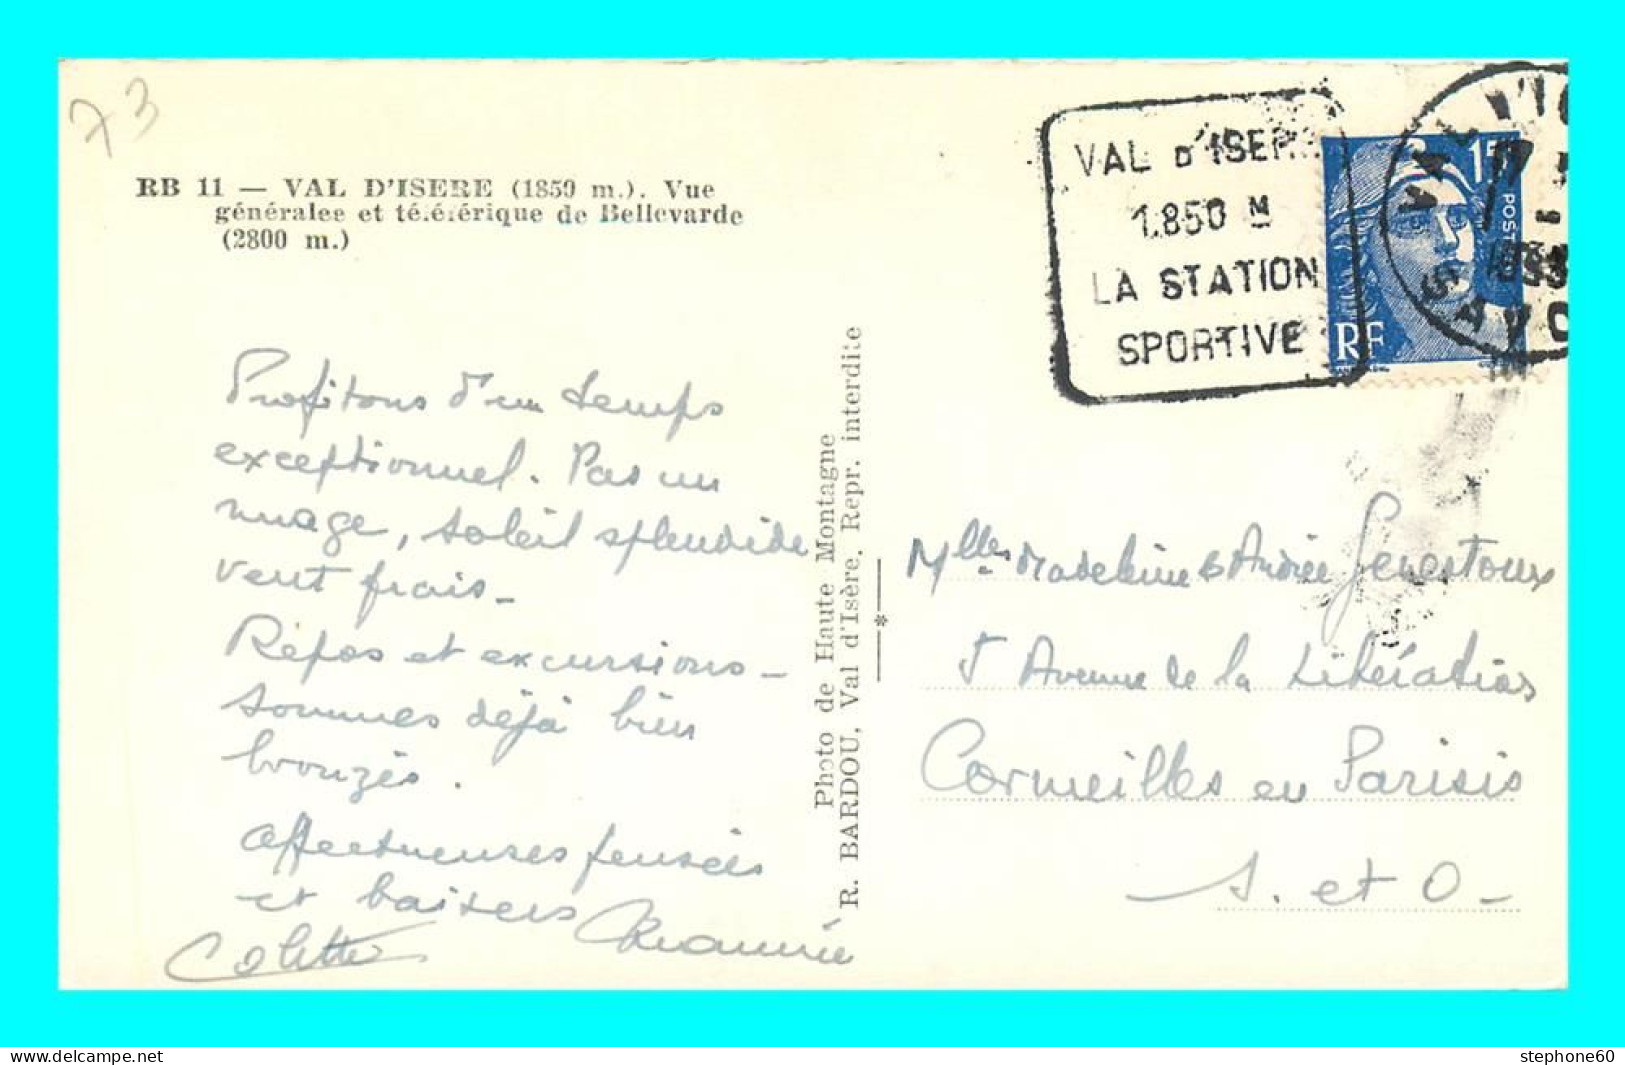 73
RB 11 — VAL D'ISERE (1850 m.). Vue
généralee et téléférique de Bellevarde
(2800 m.)
Profitons d'un temps
exceptionnel. Pas un
nuage, soleil splendide
vent frais_
Repos et excursions_
sommes déjà bien
bronzés.
Affectueuses pensées
et baisers
Colette
Photo de Haute Montagne
R. BARDOU, Val d'Isère. Repr. interdite
VAL D'ISERE
1.850 M
LA STATION
SPORTIVE
15
POSTES
RF
SAVOIE
Mlles Madeleine & Andrée Genestoux
5 Avenue de la Libération
Cormeilles en Parisis
S. et O_
stephone60